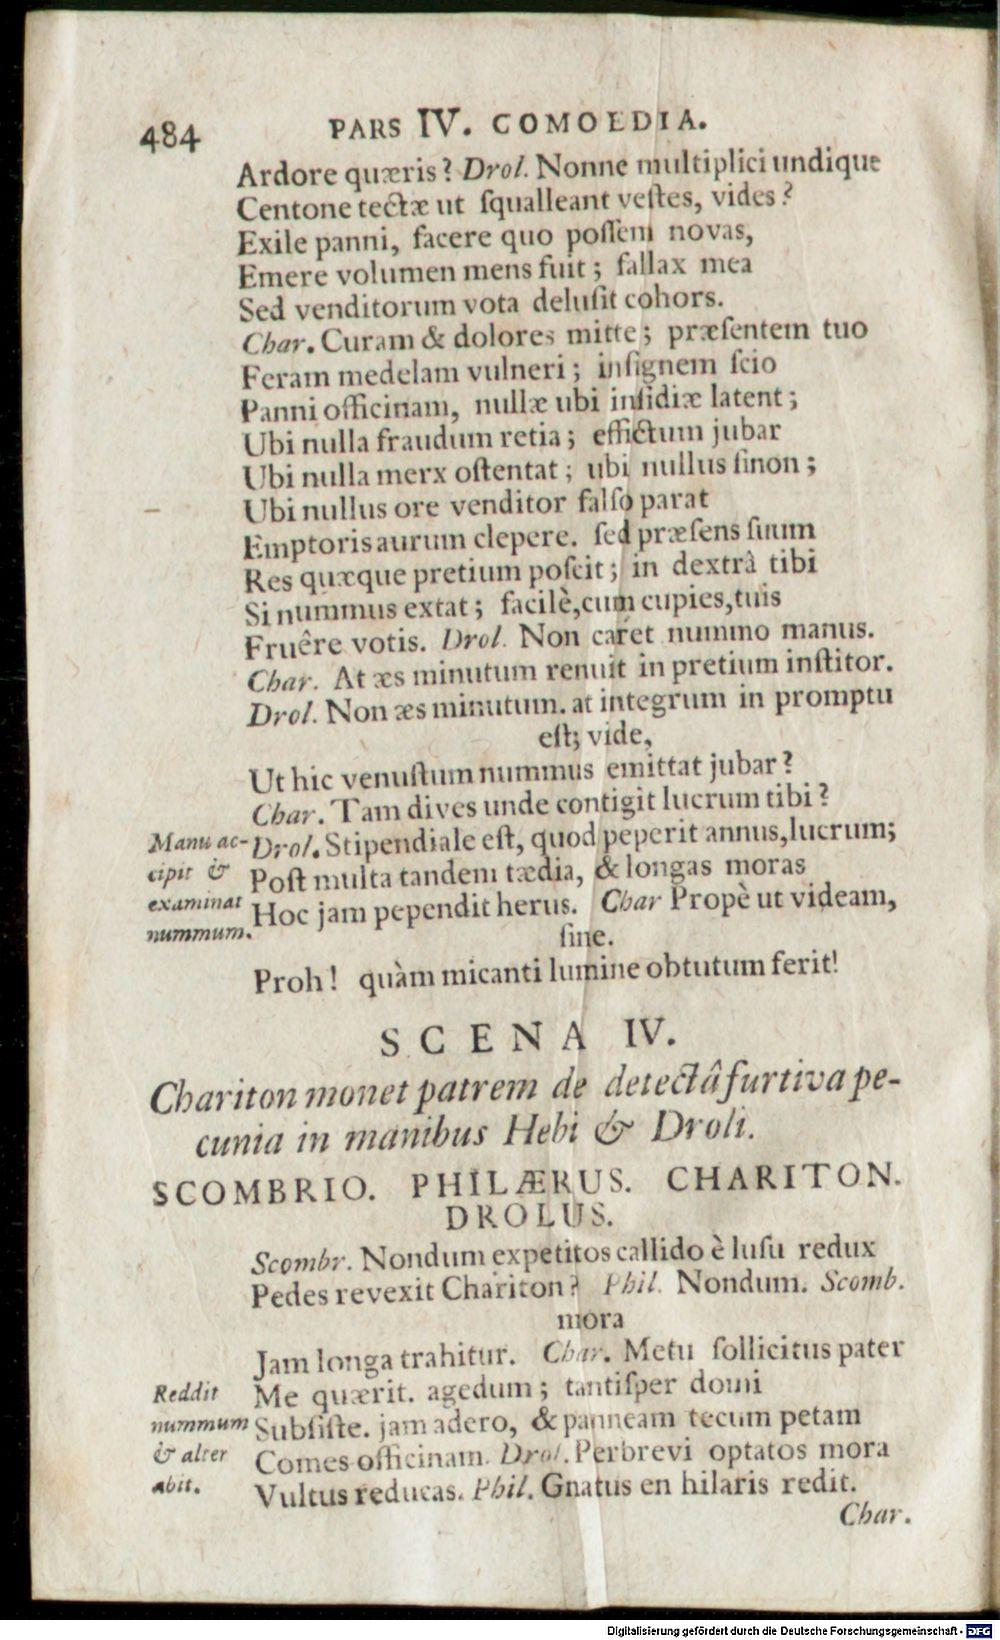 484 PARS IV. COMOEDIA.
Ardore quæris? Drol. Nonne multiplici undique
Centone tectæ ut ſqualleant veſtes, vides?
Exile panni, facere quo poſſem novas,
Emere volumen mens fuit; fallax mea
Sed venditorum vota deluſit cohors.
Char. Curam & dolores mitte; præſentem tuo
Feram medelam vulneri; inſignem ſcio
Panni officinam, nullæ ubi inſidiæ latent;
Ubi nulla fraudum retia; effictum jubar
Ubi nulla merx oſtentat; ubi nullus ſinon;
Ubi nullus ore venditor falſo parat
Emptoris aurum clepere. ſed præſens ſuum
Res quæque pretium poſcit; in dextrâ tibi
Si nummus extat; facilè, cum cupies, tuis
Fruêre votis. Drol. Non caret nummo manus.
Char. At æs minutum renuit in pretium inſtitor.
Drol. Non æs minutum. at integrum in promptu
eſt; vide,
Ut hic venuſtum nummus emittat jubar?
Char. Tam dives unde contigit lucrum tibi?
Manu ac- Drol. Stipendiale eſt, quod peperit annus, lucrum;
cipit & Poſt multa tandem tædia, & longas moras
examinat Hoc jam pependit herus. Char Propè ut videam,
nummum. ſine.
Proh! quàm micanti lumine obtutum ferit!
SCENA IV.
Chariton monet patrem de detectâ furtiva pe-
cunia in manibus Hebi & Droli.
SCOMBRIO. PHILÆRUS. CHARITON.
DROLUS.
Scombr. Nondum expetitos callido è luſu redux
Pedes revexit Chariton? Phil. Nondum. Scomb.
mora
Jam longa trahitur. Char. Metu ſollicitus pater
Reddit Me quærit. agedum; tantiſper domi
nummum Subſiſte. jam adero, & panneam tecum petam
& alter Comes officinam. Drol. Perbrevi optatos mora
abit. Vultus reducas. Phil. Gnatus en hilaris redit.
Char.
Digitalisierung gefördert durch die Deutsche Forschungsgemeinschaft - DFG